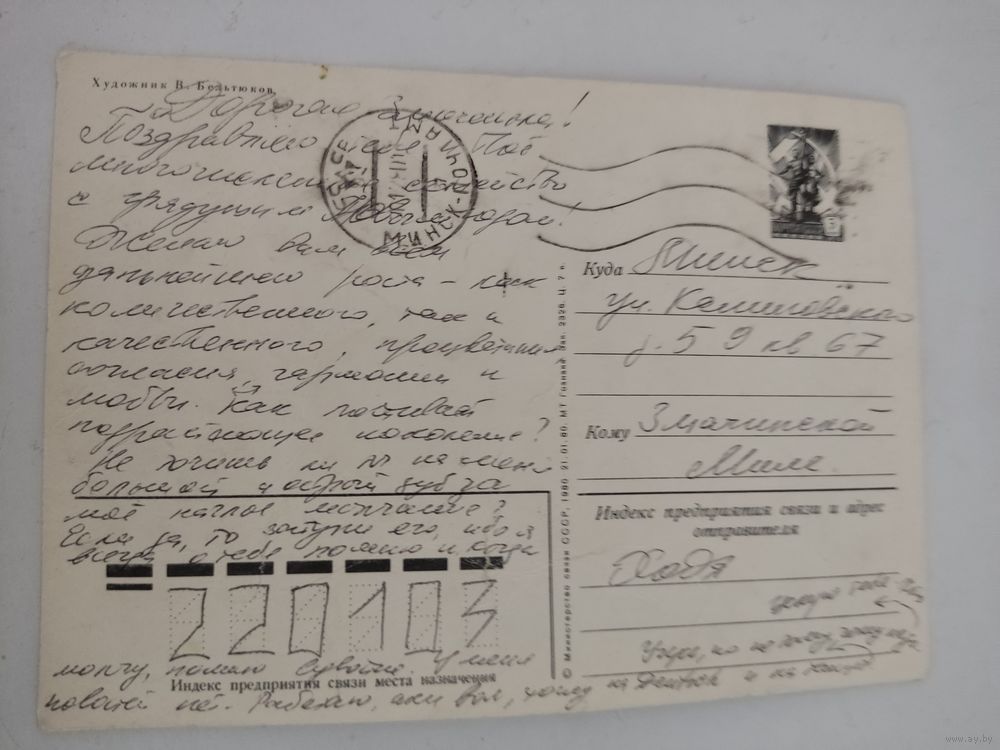 Художник В. Бельтюков
Дорогая Змачинска!
Поздравляю тебя Твоё
многочисленное семейство
с грядущим Новым годом!
Желаю вам всем
дальнейшего роста – как
количественного, так и
качественного, процветания
согласия, гармонии и
любви. Как поживает
подрастающее поколение?
Не точишь ли ты на меня
большой и острый зуб за
моё наглое молчание?
Если да, то затупи его, ибо я
всегда о тебе помню и когда
молчу, помню У меня
новостей нет. Работаю, аки вол, хожу на
МИНСК-ПОЧТАМТ
МИНСК
Куда Минск
ул. Калиновского
д. 59 кв 67
Кому Змачинской
Миле
Индекс предприятия связи и адрес
отправителя
Ходя
целую тебя
220103
Индекс предприятия связи места назначения
© Министерство связи СССР, 1980 21.01.80. МТ Гознака. Зак. 2326. Ц. 7 к.
www.ay.by